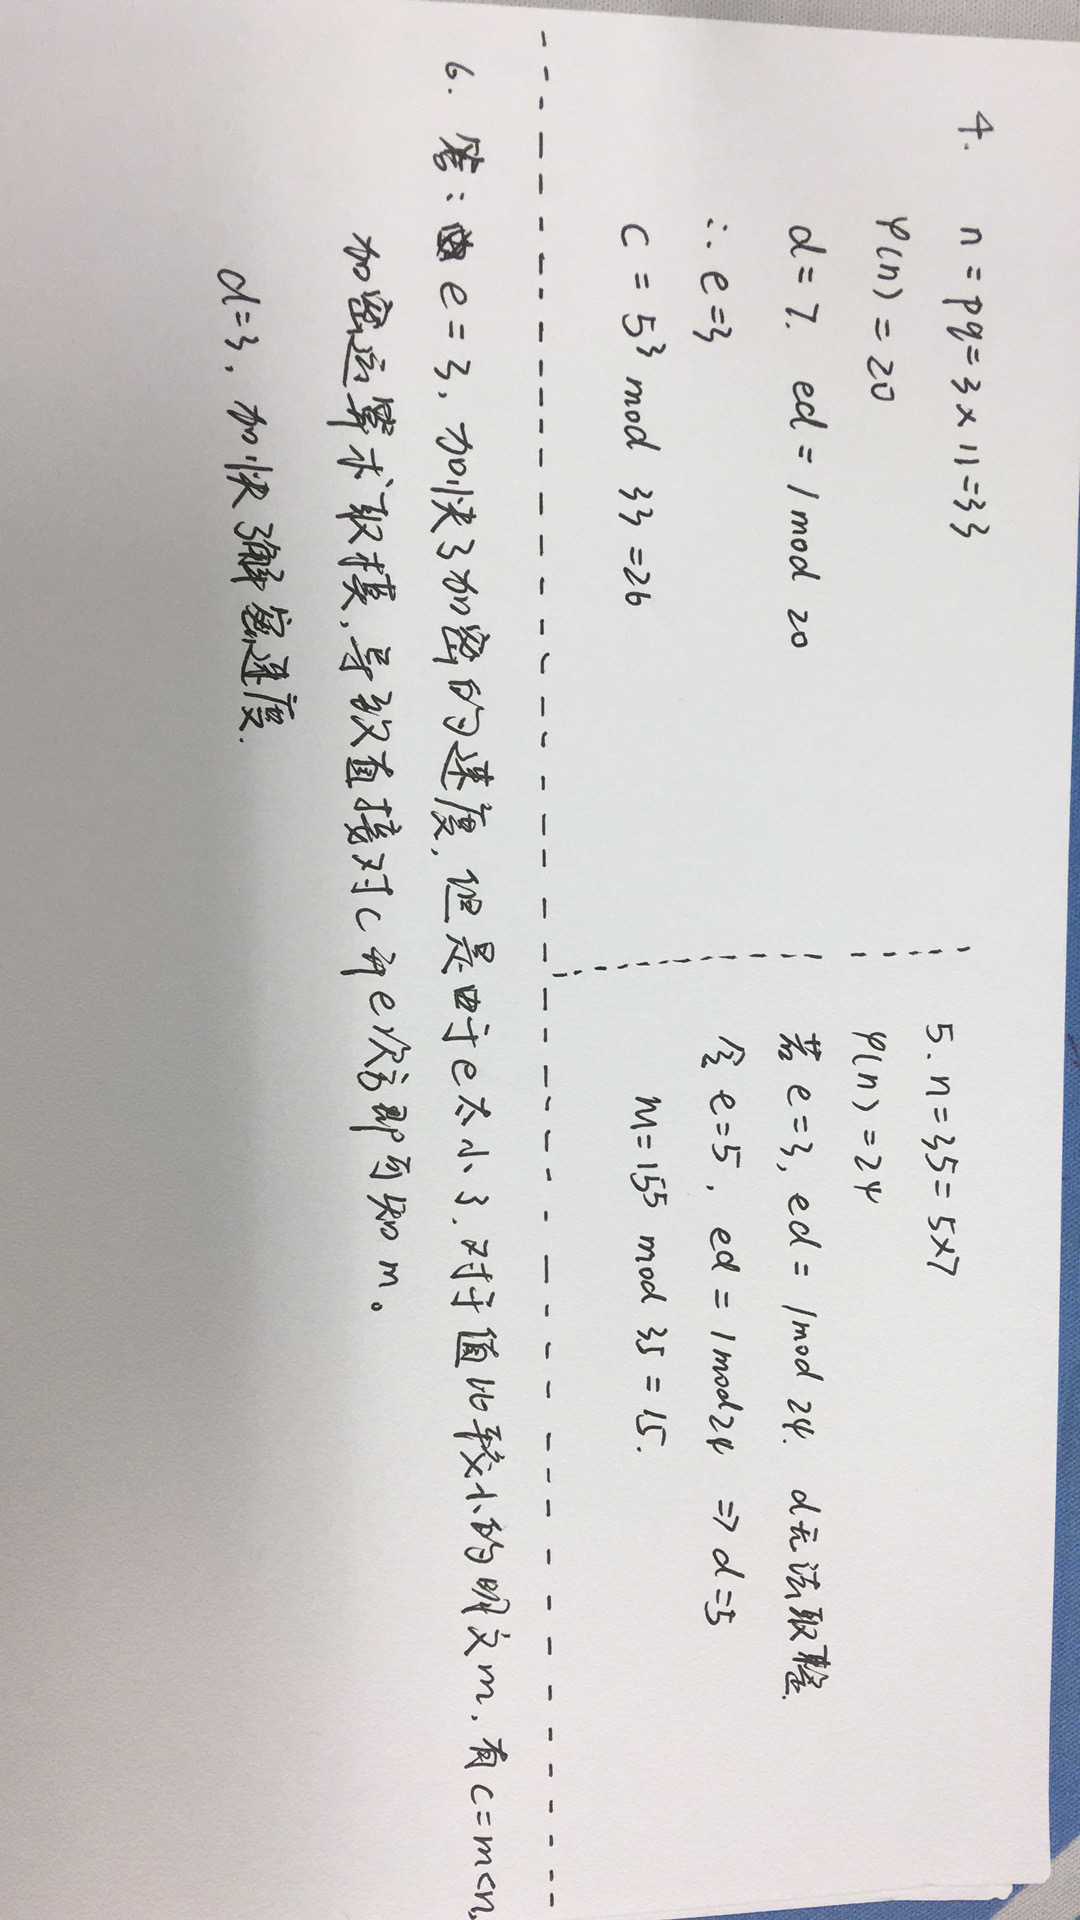 4. n = pq = 3 × 11 = 33
φ(n) = 20
d = 7. ed = 1 mod 20
∴ e = 3
C = 5³ mod 33 = 26
5. n = 35 = 5×7
φ(n) = 24
若 e = 3, ed = 1 mod 24. d无法取整.
令 e = 5, ed = 1 mod 24 => d = 5
M = 15⁵ mod 35 = 15.
6. 答: e = 3, 加快了加密的速度, 但是由于e太小了. 对于值比较小的明文m, 有 C = m < n,
加密运算未取模, 导致直接对C开e次方即可知m。
d = 3, 加快了解密速度.